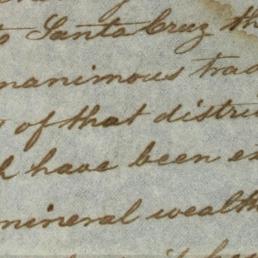 to Santa Cruz th
nanimous trad
of that distri
h have been ex
mineral wealth